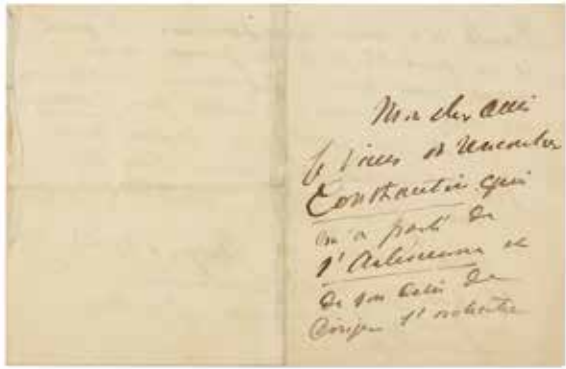 Mon cher ami
Je viens de rencontrer
Constantin qui
m'a parlé de
l'Arlésienne et
de son désir de
diriger l'orchestre